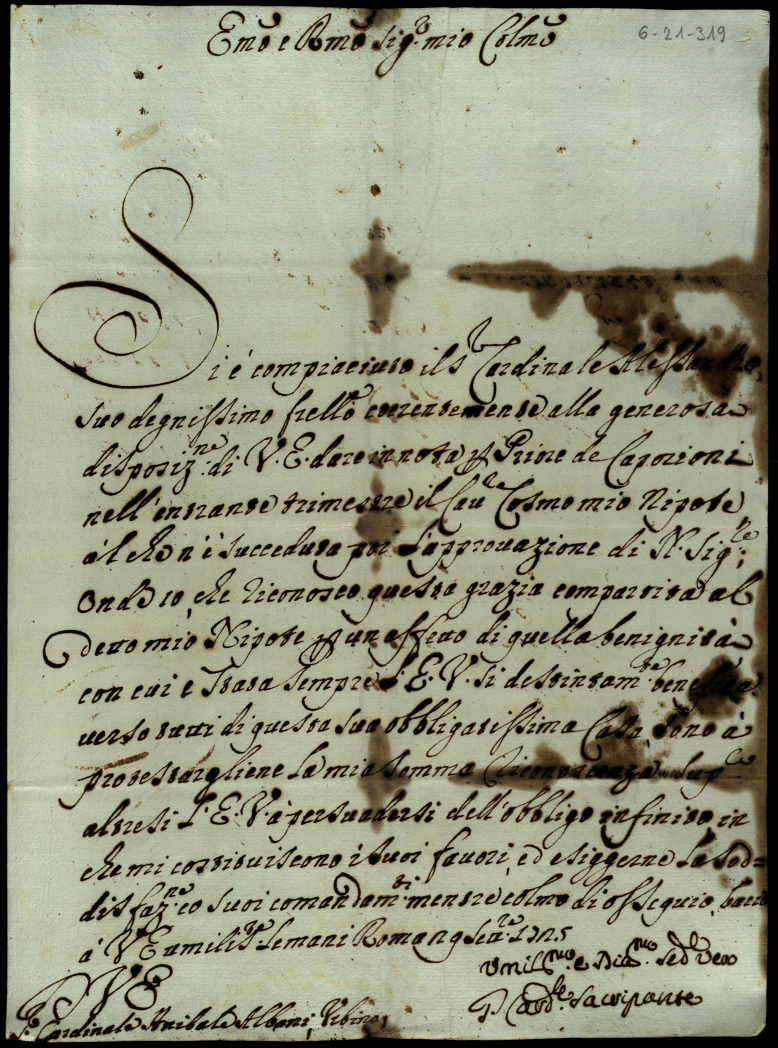 Emõ e Rmõ Sig.r mio Colmõ
6-21-319
Si è compiaciuto il S.r Cardinale Alessandro,
suo degnissimo frello coerentemente alla generosa
disposiz.ne di V. E. dare in nota p Priore de Caporioni
nell'entrante trimestre il Cau.re Cosmo mio Nipote
al che n'è succeduta poi l'approuazione di N. Sig.re;
Ond'io, che riconosco questa grazia compartita al
detto mio Nipote p un effetto di quella benignità
con cui è stata sempre l'E. V. si destintam.te benefica
uerso tutti di questa sua obbligatissima Casa, sono à
protestargliene la mia somma riconoscenza. Sup.co
altresi l'E. V. à persuadersi dell'obbligo infinito in
che mi costituiscono i suoi fauori, ed esiggerne la sod=
disfaz.ne co suoi comandam.ti mentre colmo di ossequio, bacio
à V E umiliss.te le mani Roma 1725
Vmil.mo e Diu.mo Sed.le Vero
V E
G. Card.le Sacripante
S.r Cardinale Anibale Albani, Vrbino,